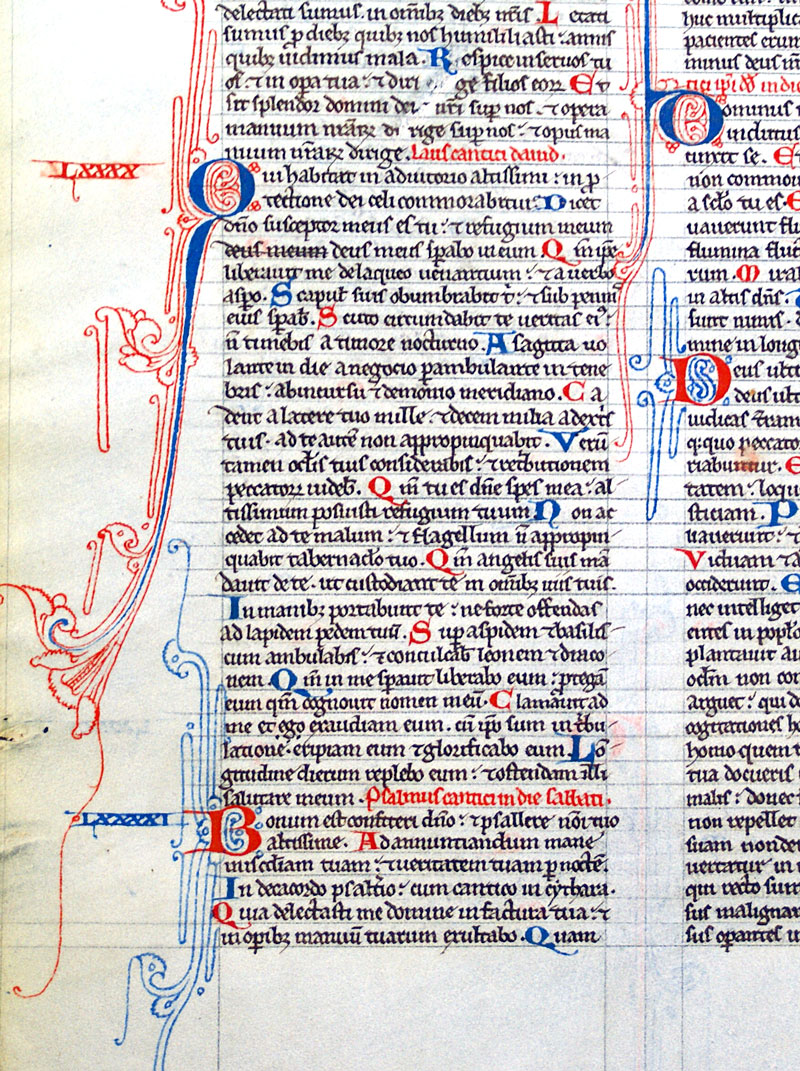 delectati sumus. in omībȝ diebȝ nr̄is. Letati
sumus ꝓ diebȝ quibȝ nos humiliasti: annis
quibȝ uidimus mala. Respice in seruos tu
os: ⁊ in opa tua: ⁊ diri ge filios eoꝝ. Et
sit splendor domini dei nr̄i sup nos: ⁊ opera
manuum nr̄aꝝ di rige sup nos: ⁊ opus ma
nuum nr̄aꝝ dirige. Laus cantici dauid.
LXXXX
Qui habitat in adiutorio altissimi: in ꝓ
tectione dei celi commorabitur. Dicet
dn̄o susceptor meus es tu: ⁊ refugium meum
deus meum deus meus spabo in eum. Qm̄ ipe
liberauit me de laqueo uenantium: ⁊ a uerbo
aspo. Scapul' suis obumbrabit t': ⁊ sub pennis
eius spab'. Scuto circumdabit te ueritas ei':
n̄ timebis a timore nocturno. A sagitta uo
lante in die a negocio pambulante in tene
bris: ab incursu ⁊ demonio meridiano. Ca
dent a latere tuo mille: ⁊ decem milia a dextris
tuis. ad te autē non appropinquabit. Verū
tamen oclis tuis considerabis: ⁊ retributionem
peccatoꝝ uideb'. Qm̄ tu es dn̄e spes mea: al
tissimum posuisti refugium tuum. Non ac
cedet ad te malum: ⁊ flagellum n̄ appropin
quabit tabernaclo tuo. Qm̄ angelis suis mā
dauit de te. ut custodiant te in omībȝ uiis tuis.
In manibȝ portabunt te: ne forte offendas
ad lapidem pedem tuū. Sup aspidem ⁊ basilis
cum ambulabis: ⁊ conculcab' leonem ⁊ draco
nem. Qm̄ in me spauit liberabo eum: ꝓtegā
eum qm̄ cognouit nomen meū. Clamauit ad
me et ego exaudiam eum. cū ipo sum in tbu
latione. eripiam eum ⁊ glorificabo eum. Lō
gitudine dierum replebo eum: ⁊ ostendam illi
salutare meum. Psalmus cantici in die sabbati.
LXXXXI
Bonum est confiteri dn̄o: ⁊ psallere nōi tuo
altissime. Ad annuntiandum mane
misc̄diam tuam: ⁊ ueritatem tuam p noctē.
In decacordo psaltio: cum cantico in cythara.
Quia delectasti me domine in factura tua: ⁊
in opibȝ manuū tuarum exultabo. Quam
huc multiplic
pacientes erun
minus deus
Dominus
indutus
non commou
a sc̄lo tu es.
uauerunt flu
flumina fluc
rum. Mira
in altis dn̄s.
sunt nimis.
mine in long
Deus ulti
deus ult
iudicas
peccato
tatem: loqu
sticiam. P
uauerunt: ⁊
Viduam ⁊ a
occiderunt.
nec intelliget
entes in poplo
plantauit au
oclm non con
arguet: qui do
cogitationes h
homo quem t
tua docueris
malis: donec
non repellet
suam non de
uertatur in
qui recto sunt
sus malignan
sus opantes in